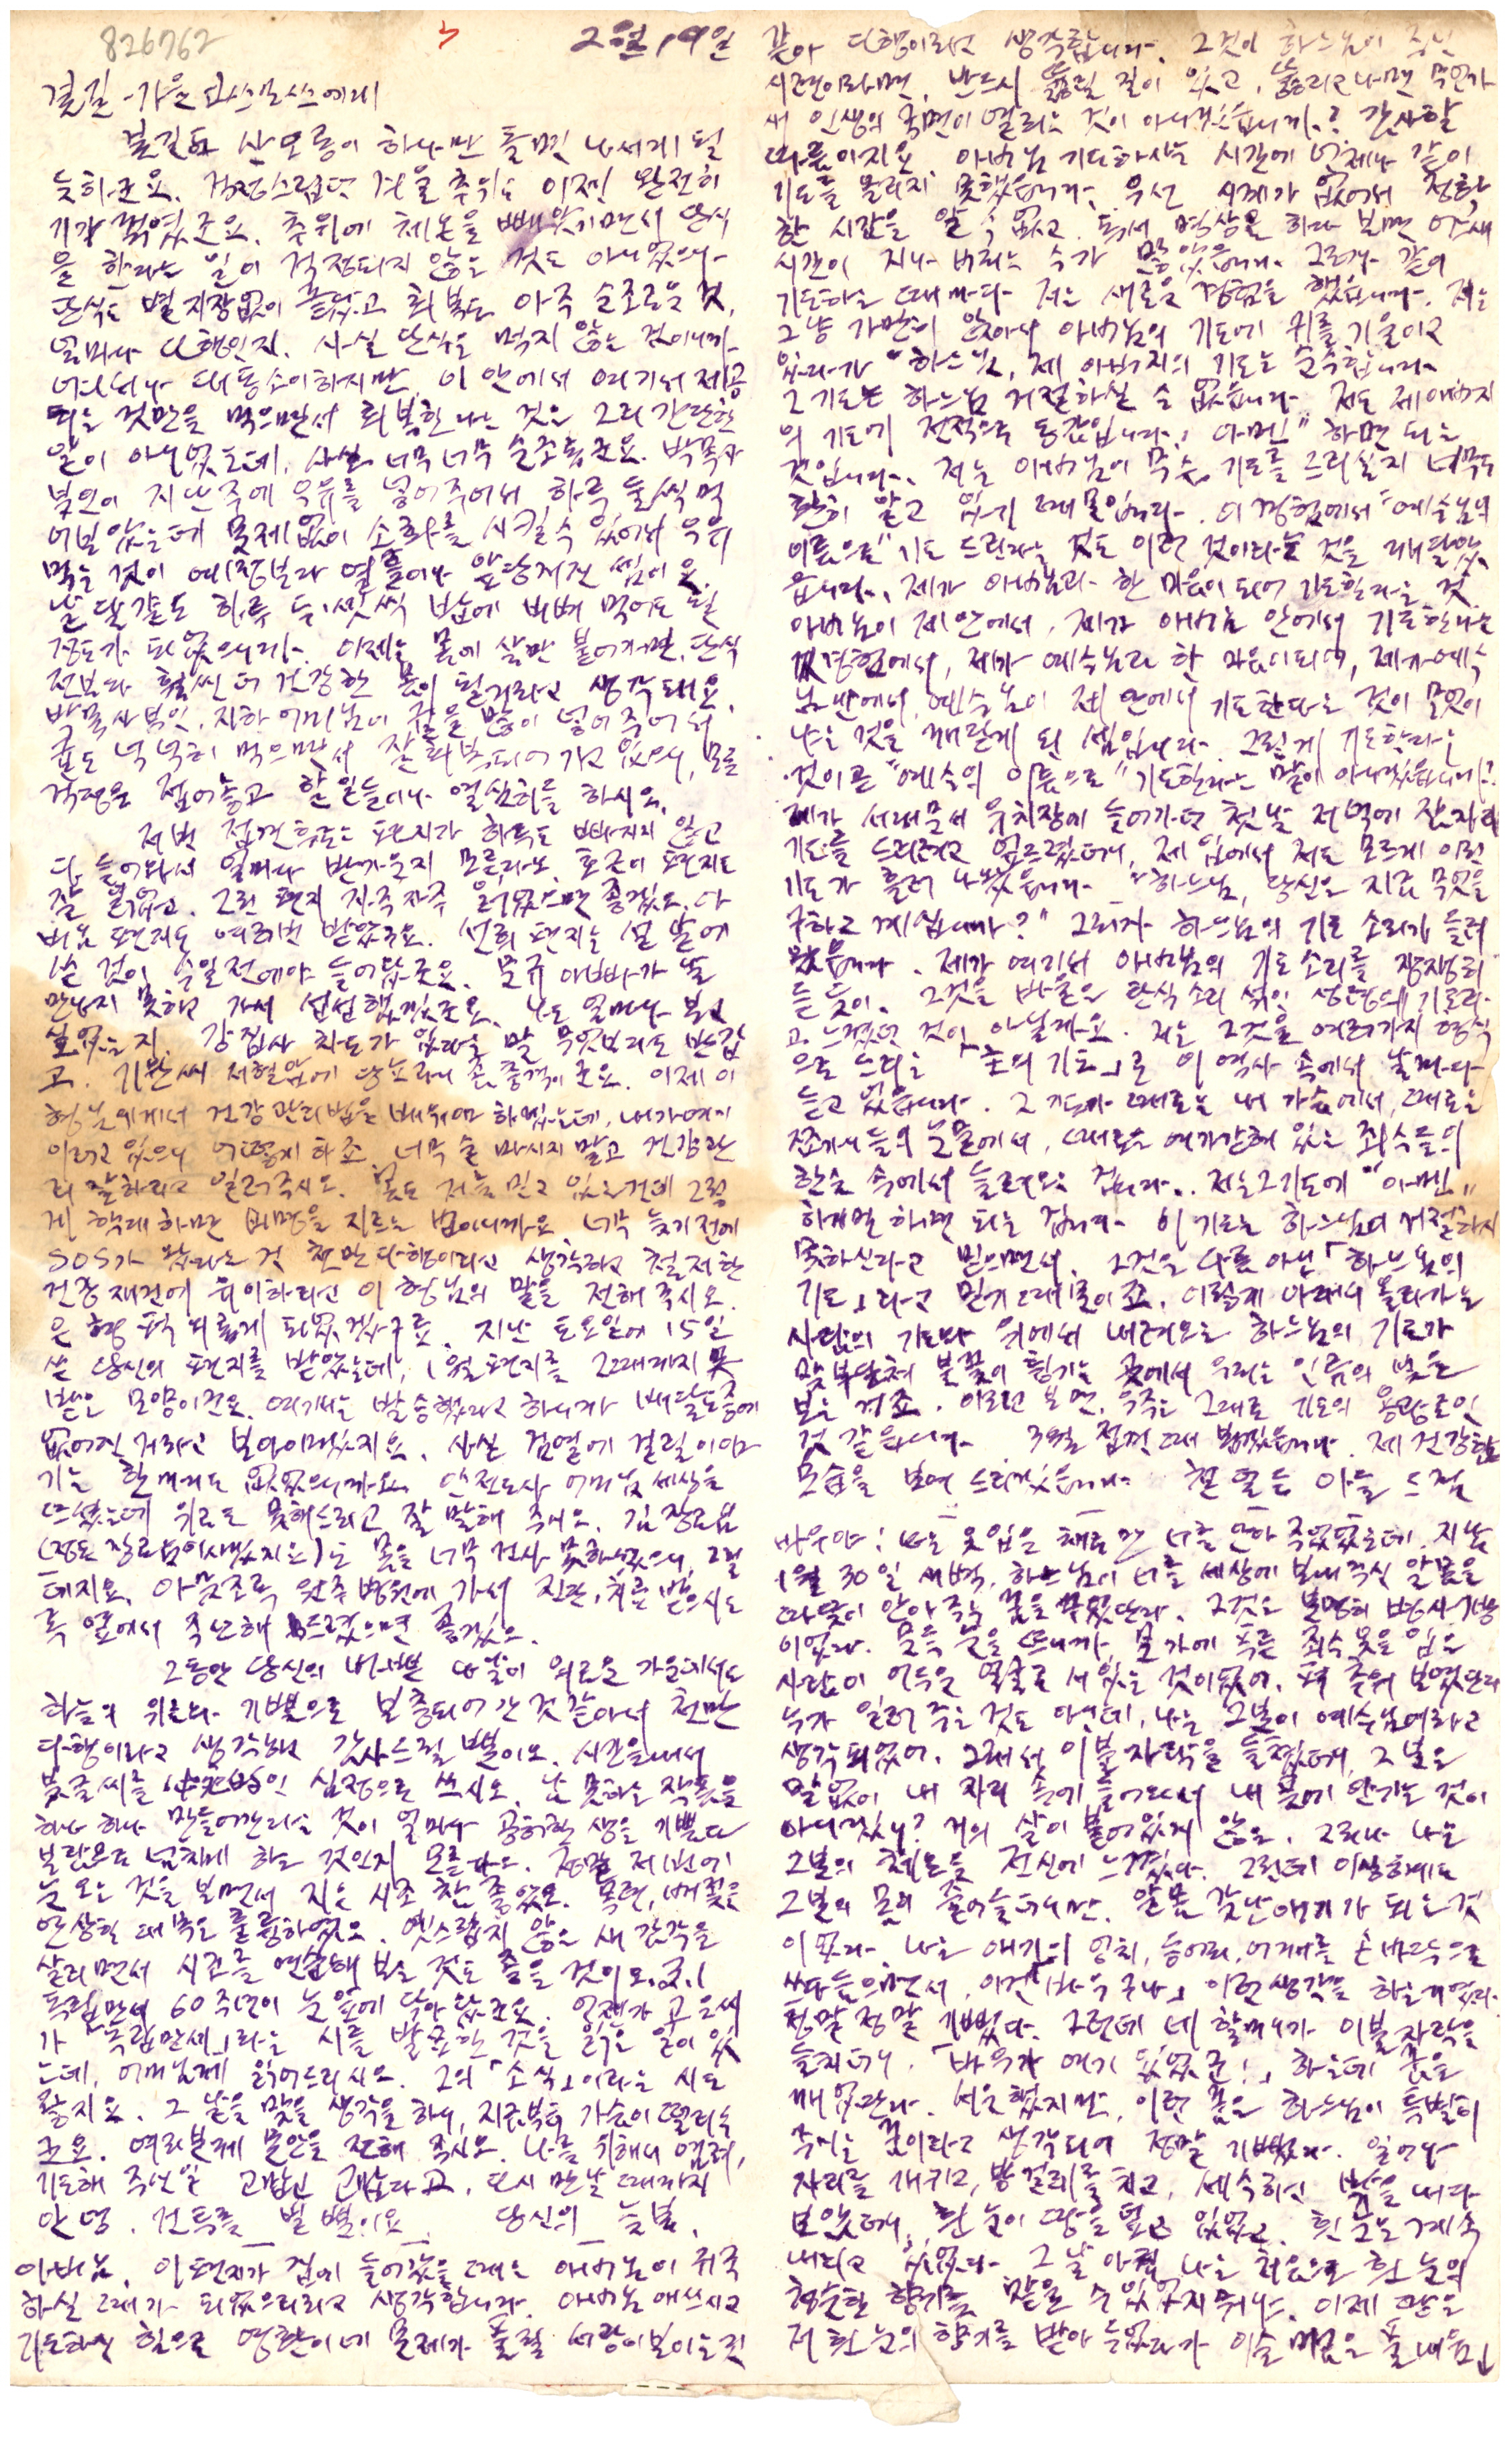 826762
2월 19일
봄길 - 가을 코스모스에게
봄길도 산모퉁이 하나만 돌면 나서게 될
듯하군요. 걱정스럽던 겨울 추위도 이젠 완전히
기가 꺾였군요. 추위에 체온을 빼앗기면서 단식
을 한다는 일이 걱정되지 않은 것도 아니었으나
단식은 별 지장없이 끝났고 회복도 아주 순조로운 것,
얼마나 다행인지. 사실 단식은 먹지 않는 것이니까
어디서나 대동소이하지만, 이 안에서 여기서 제공
되는 것만을 먹으면서 회복한다는 것은 그리 간단한
일이 아니었는데, 사실 너무너무 순조롭군요. 박목사
부인이 지난 주에 우유를 넣어주어서 하루 둘씩 먹
어보았는데 문제없이 소화를 시킬 수 있어서 우유
먹는 것이 예정보다 열흘이나 앞당겨진 셈이오.
날달걀도 하루 두·셋씩 밥에 비벼 먹어도 될
정도가 되었으니까. 이제는 몸에 살만 붙어가면, 단식
전보다 훨씬 더 건강한 몸이 될거라고 생각돼요.
박목사 부인, 지하 어머님이 귤을 많이 넣어 주어서
귤도 넉넉히 먹으면서 잘 회복되어 가고 있으니, 모든
걱정을 접어놓고 할 일들이나 열심히들 하시오.
저번 접견 후로는 편지가 하루도 빠지지 않고
다 들어와서 얼마나 반가운지 모른다오. 호근이 편지도
잘 읽었고. 그런 편지 자주 자주 읽었으면 좋겠소. 아
버님 편지도 여러번 받았군요. 선희 편지는 설날에
쓴 것이 수일 전에야 들어왔군요. 문규 아빠가 날
만나지 못하고 가서 섭섭했겠군요. 나도 얼마나 보고
싶었는지. 강집사 차도가 있다는 말 무엇보다도 반갑
고. 기완씨 저혈압에 당뇨라니 좀 충격이군요. 이제 이
형님에게서 건강관리법을 배워야 하겠는데, 내가 여기
이러고 있으니 어떻게 하죠. 너무 술 마시지 말고 건강관
리 잘하라고 일러주시오. 몸도 저를 믿고 있는건데 그렇
게 학대하면 비명을 지르는 법이니까요. 너무 늦기 전에
SOS가 왔다는 것 천만다행이라고 생각하고 철저한
건강 재건에 유의하라고 이 형님의 말을 전해 주시오.
은행 퍽 외롭게 되었겠구료. 지난 토요일에 15일
쓴 당신의 편지를 받았는데, 1월 편지를 그때까지 못
받은 모양이군요. 여기서는 발송했다고 하니까 배달도중에
없어진거라고 보아야겠지요. 사실 검열에 걸릴 이야
기는 한마디도 없었으니까요. 안전도사 어머님 세상을
뜨셨는데 위로도 못해드리고 잘 말해 주시오. 김장로님
(정도 장로님이시겠지요)도 몸을 너무 건사 못하셨으니 그럴
테지요. 아무쪼록 원주병원에 가서 진단, 치료 받으시도
록 옆에서 주선해 드렸으면 좋겠소.
그동안 당신의 바쁜 나날이 외로운 가운데서도
하늘의 위로와 기쁨으로 보충되어 간 것 같아서 천만
다행이라고 생각하고 감사드릴 뿐이오. 시간을 내서
붓글씨를 심정으로 쓰시오. 난 못하는 작품을
하나 하나 만들어간다는 것이 얼마나 공허한 생을 기쁨과
보람으로 넘치게 하는 것인지 모른다오. 정말 저번에
눈 오는 것을 보면서 지은 시조 참 좋았오. 목련, 벚꽃을
연상한 대목은 훌륭하였오. 옛스럽지 않은 새 감각을
살리면서 시조를 연습해 보는 것도 좋을 것이오. 3.1
독립만세 60주년이 눈 앞에 닥아왔군요. 언젠가 고은씨
가 「독립만세」라는 시를 발표한 것을 읽은 일이 있
는데, 어머님께 읽어드리시오. 그의 「소식」이라는 시도
좋지요. 그 날을 맞을 생각을 하니, 지금부터 가슴이 떨리는
군요. 여러분께 문안을 전해 주시오. 나를 위해서 염려,
기도해 주신 일 고맙고 고맙다고. 다시 만날 때까지
안녕. 건투를 빌 뿐이오. 당신의 늦봄.
아버님, 이 편지가 집에 들어갔을 때는 아버님이 귀국
하실 때가 되었으리라고 생각합니다. 아버님 애쓰시고
기도하신 힘으로 영환이네 문제가 풀릴 서광이 보이는 것
같아 다행이라고 생각합니다. 그것이 하느님이 주신
시련이라면, 반드시 뚫릴 길이 있고, 뚫리고 나면 무언가
새 인생의 국면이 열리는 것이 아니겠습니까? 감사할
따름이지요. 아버님 기도하시는 시간에 언제나 같이
기도를 올리지 못했습니다. 우선 시계가 없어서 정확
한 시간을 알 수 없고. 독서 명상을 하다 보면 어느새
시간이 지나 버리는 수가 많았습니다. 그러나 같이
기도하는 때마다 저는 새로운 경험을 했습니다. 저는
그냥 가만히 앉아서 아버님의 기도에 귀를 기울이고
있다가 "하느님, 제 아버지의 기도는 순수합니다.
그 기도는 하느님 거절하실 수 없습니다. 저도 제 아버지
의 기도에 전적으로 동감입니다. 아멘" 하면 되는
것입니다. 저는 아버님이 무슨 기도를 드리실지 너무도
환히 알고 있기 때문입니다. 이 경험에서 "예수님의
이름으로" 기도 드린다는 것도 이런 것이라는 것을 깨달았
습니다. 제가 아버님과 한 마음이 되어 기도한다는 것
아버님이 제 안에서, 제가 아버님 안에서 기도한다는
경험에서, 제가 예수님과 한 마음이 되어, 제가 예수
님 안에서, 예수님이 제 안에서 기도한다는 것이 무엇이
냐는 것을 깨닫게 된 셈입니다. 그렇게 기도한다는
것이 곧 "예수의 이름으로" 기도한다는 말이 아니겠습니까?
제가 서대문서 유치장에 들어가던 첫날 저녁에 잠자리
기도를 드리려고 엎드렸더니, 제 입에서 저도 모르게 이런
기도가 흘러 나왔습니다. "하느님, 당신은 지금 무엇을
구하고 계십니까?" 그러자 하느님의 기도 소리가 들려
왔습니다. 제가 여기서 아버님의 기도 소리를 쟁쟁히
듣듯이. 그것을 바울은 탄식소리 섞인 성령의 기도라
고 느꼈던 것이 아닐까요. 저는 그것을 여러가지 형식
으로 드리는 「주의 기도」로 이 역사 속에서 날마다
듣고 있습니다. 그 기도가 때로는 내 가슴에서, 때로는
들의 눈물에서, 때로는 여기 갇혀 있는 죄수들의
한숨 속에서 들려오는 겁니다. 저는 그 기도에 "아멘"
하기만 하면 되는 겁니다. 이 기도는 하느님이 거절하시
못하신다고 믿으면서. 그것은 다름 아닌 「하느님의
기도」라고 믿기 때문이죠. 이렇게 아래서 올라가는
사람의 기도와 위에서 내려오는 하느님의 기도가
맞부닥쳐 불꽃이 튕기는 곳에서 우리는 인류의 빛을
보는 거죠. 이러고 보면, 우주는 그대로 기도의 용광로인
것 같습니다. 3월 접견 때 뵙겠습니다. 제 건강한
모습을 보여 드리겠습니다. 아들 드림
바우야! 나는 옷 입은 채로만 너를 안아 주었었는데, 지난
1월 30일 새벽, 하느님이 너를 세상에 보내주신 알몸을
따뜻이 안아 주는 꿈을 꾸었단다. 그것은 분명히 병사 기방
이었다. 문득 눈을 뜨니까, 문가에 푸른 죄수옷을 입은
사람이 어두운 얼굴로 서 있는 것이었어. 퍽 추워 보였단다
누가 일러 주는 것도 아닌데, 나는 그분이 예수님이라고
생각되었어. 그래서 이불자락을 들쳤더니, 그분은
말없이 내 자리 속에 들어와서 내 품에 안기는 것이
아니겠니? 거의 살이 붙어있지 않은. 그러나 나는
그분의 체온을 전신에 느꼈다. 그런데 이상하게도
그분의 몸이 줄어들더니만, 알몸 갓난애기가 되는 것
이었다. 나는 애기의 엉치, 등어리, 어깨를 손바닥으로
쓰다듬으면서, 이건 「바우구나」 이런 생각을 하는 거였다.
정말 정말 기뻤다. 그런데 네 할머니가 이불자락을
들치더니, 「바우가 여기 있었군!」 하는데 꿈을
깨었단다. 서운했지만, 이런 꿈은 하느님이 특별히
주시는 꿈이라고 생각되어 정말 기뻤다. 일어나
자리를 개키고, 방걸레를 치고, 세수하고 밖을 내다
보았더니, 흰 눈이 땅을 덮고 있었고, 흰 눈은 계속
내리고 있었다. 그날 아침 나는 처음으로 흰 눈의
향기를 맡을 수 있었지 뭐냐. 이제 땅은
저 흰 눈의 향기를 받아 두었다가